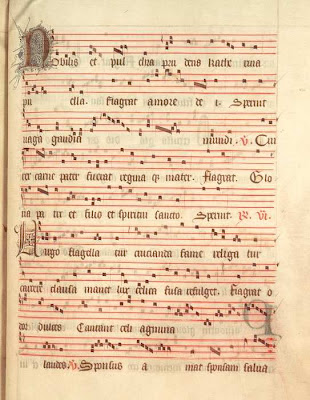 Nobilis et pul chra pru dens kathe rina
pu ella. Flagrat amore de i. Spernit
uaga gaudia mundi. V. Cui
ter carne pater fuerat regina q; mater. Flagrat. Glo
ria pa tri et filio et spiritui sancto. Spernit. R. VI.
Uirgo flagella tur crucianda fame religa tur
carcere clausa manet lux celica fusa refulget. Flagrat o
dor dulces Cantant celi agmina
laudes. V. Sponsus a mat sponsam salua